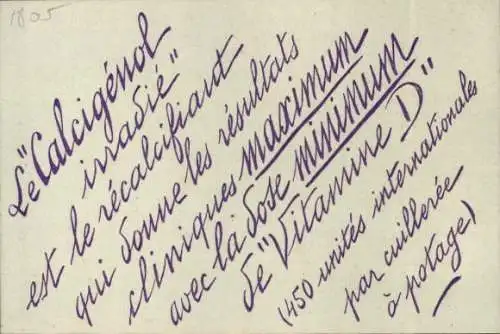 1805
Le "Calcigénol
irradié"
est le récalcifiant
qui donne les résultats
cliniques maximum
avec la dose minimum
de "Vitamine D"
(450 unités internationales
par cuillerée
à potage)